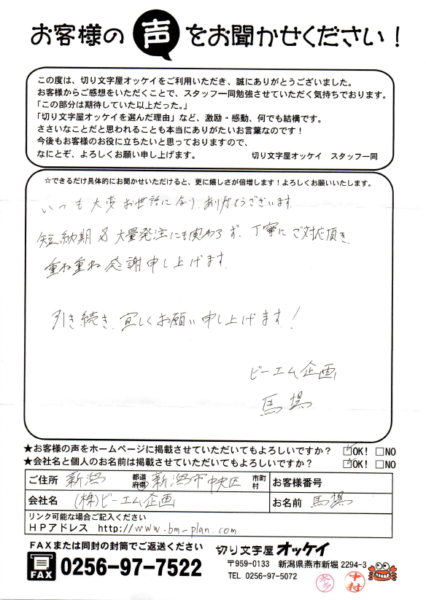 お客様の声をお聞かせください！
この度は、切り文字屋オッケイをご利用いただき、誠にありがとうございました。
お客様からご感想をいただくことで、スタッフ一同勉強させていただく気持ちでおります。
「この部分は期待していた以上だった。」
「切り文字屋オッケイを選んだ理由」など、激励・感動、何でも結構です。
ささいなことだと思われることも本当にありがたいお言葉なのです！
今後もお客様のお役に立ちたいと思っておりますので、
なにとぞ、よろしくお願い申し上げます。 切り文字屋オッケイ スタッフ一同
☆できるだけ具体的にお聞かせいただけると、更に嬉しさが倍増します！よろしくお願いいたします。
いつも大変お世話になり、ありがとうございます。
短納期 又 大量発注にも関わらず、丁寧にご対応頂き
重ね重ね感謝申し上げます。
引き続き、宜しくお願い申し上げます！
ビーエム企画
馬場
★お客様の声をホームページに掲載させていただいてもよろしいですか？ ☑OK! □NO
★会社名と個人のお名前は掲載させていただいてもよろしいですか？ ☑OK! □NO
ご住所 新潟 都道府県 新潟市中央区 市町村 お客様番号
会社名 (株)ビーエム企画 お名前 馬場
リンク可能な場合ご記入ください
HPアドレス http://www.bm-plan.com
FAXまたは同封の封筒でご返送ください
FAX 0256-97-7522
切り文字屋オッケイ
〒959-0133 新潟県燕市新堀 2294-3
TEL 0256-97-5072